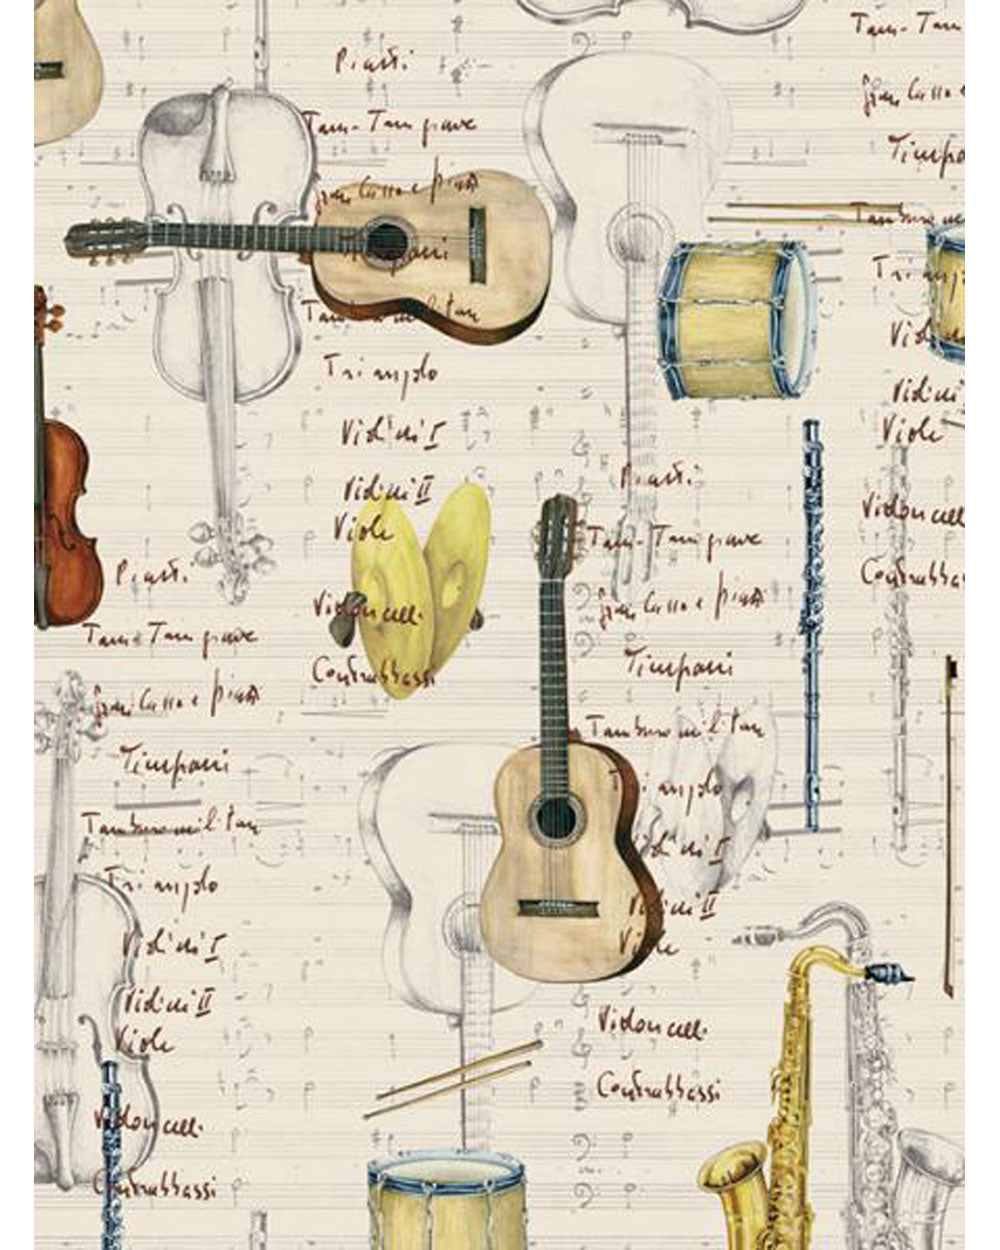 Piatti.
Tam-Tam grave
Gran Cassa e piatti
Timpani
Tamburo militare
Triangolo
Violini I
Violini II
Viole
Violoncelli
Contrabbassi
Tam-Tam
Gran Cassa e
Timpa
Tamburo mi
Triangolo
Violi
Violini
Viole
Violoncell
Contrabba
Piatti.
Tam-Tam grave
Gran Cassa e piatti
Timpani
Tamburo militar
Triangolo
Violini I
Violini II
Viole
Violoncelli
Contrabbassi
Piatti.
Tam-Tam grave
Gran Cassa e piatti
Timpani
Tamburo militar
Triangolo
Violini I
Violini II
Viole
Violoncelli
Contrabbassi